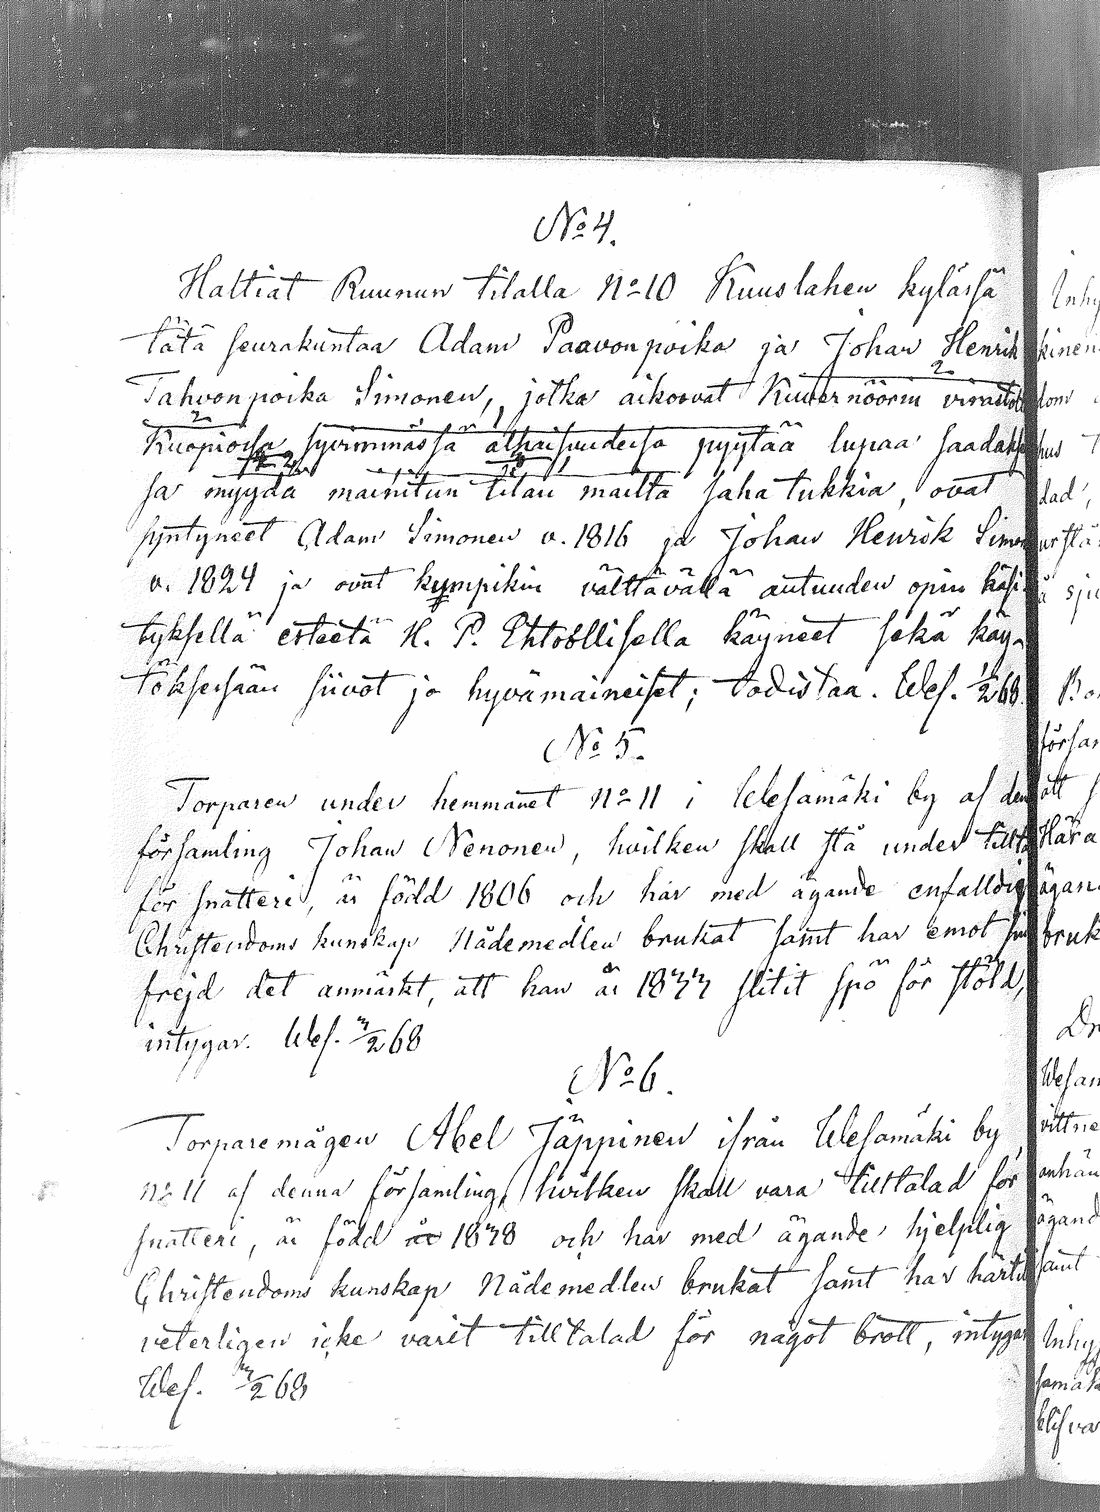 No 4.
Haltiat Ruunun tilalla No 10 Kuuslahen kylässä
tätä seurakuntaa Adam Paavonpoika ja Johan Henrik
Tahvonpoika Simonen, jotka aikoovat Kuvernöörin virastolta
Kuopiossa syvimmässä alhaisuudessa pyytää lupaa saadakse
sa myydä mainitun tilan mailta saha tukkia, ovat
syntyneet Adam Simonen v. 1816 ja Johan Henrik Simo
v. 1824 ja ovat kumpikin välttävällä autuuden opin käsi
tyksellä esteetä H. P. Ehtoollisella käyneet sekä käy-
töksessään siivot ja hyvämaineiset; todistaa. Wes. 1/2 68.
No 5.
Torparen under hemmanet No 11 i Wesamäki by af den
församling Johan Nenonen, hvilken skall stå under tillta
för snatteri, är född 1806 och har med ägande enfalldig
Christendoms kunskap Nådemedlen brukat samt har emot sin
frejd det anmärkt, att han år 1833 slitit spö för stöld,
intygar. Wes. 3/2 68
No 6.
Torparemågen Abel Jäppinen ifrån Wesamäki by
No 11 af denna församling, hvilken skall vara tilltalad för
snatteri, är född 1838 och har med ägande hjelplig
Christendoms kunskap Nådemedlen brukat samt har härtil
veterligen icke varit tilltalad för något brott, intygar
Wes. 3/2 68